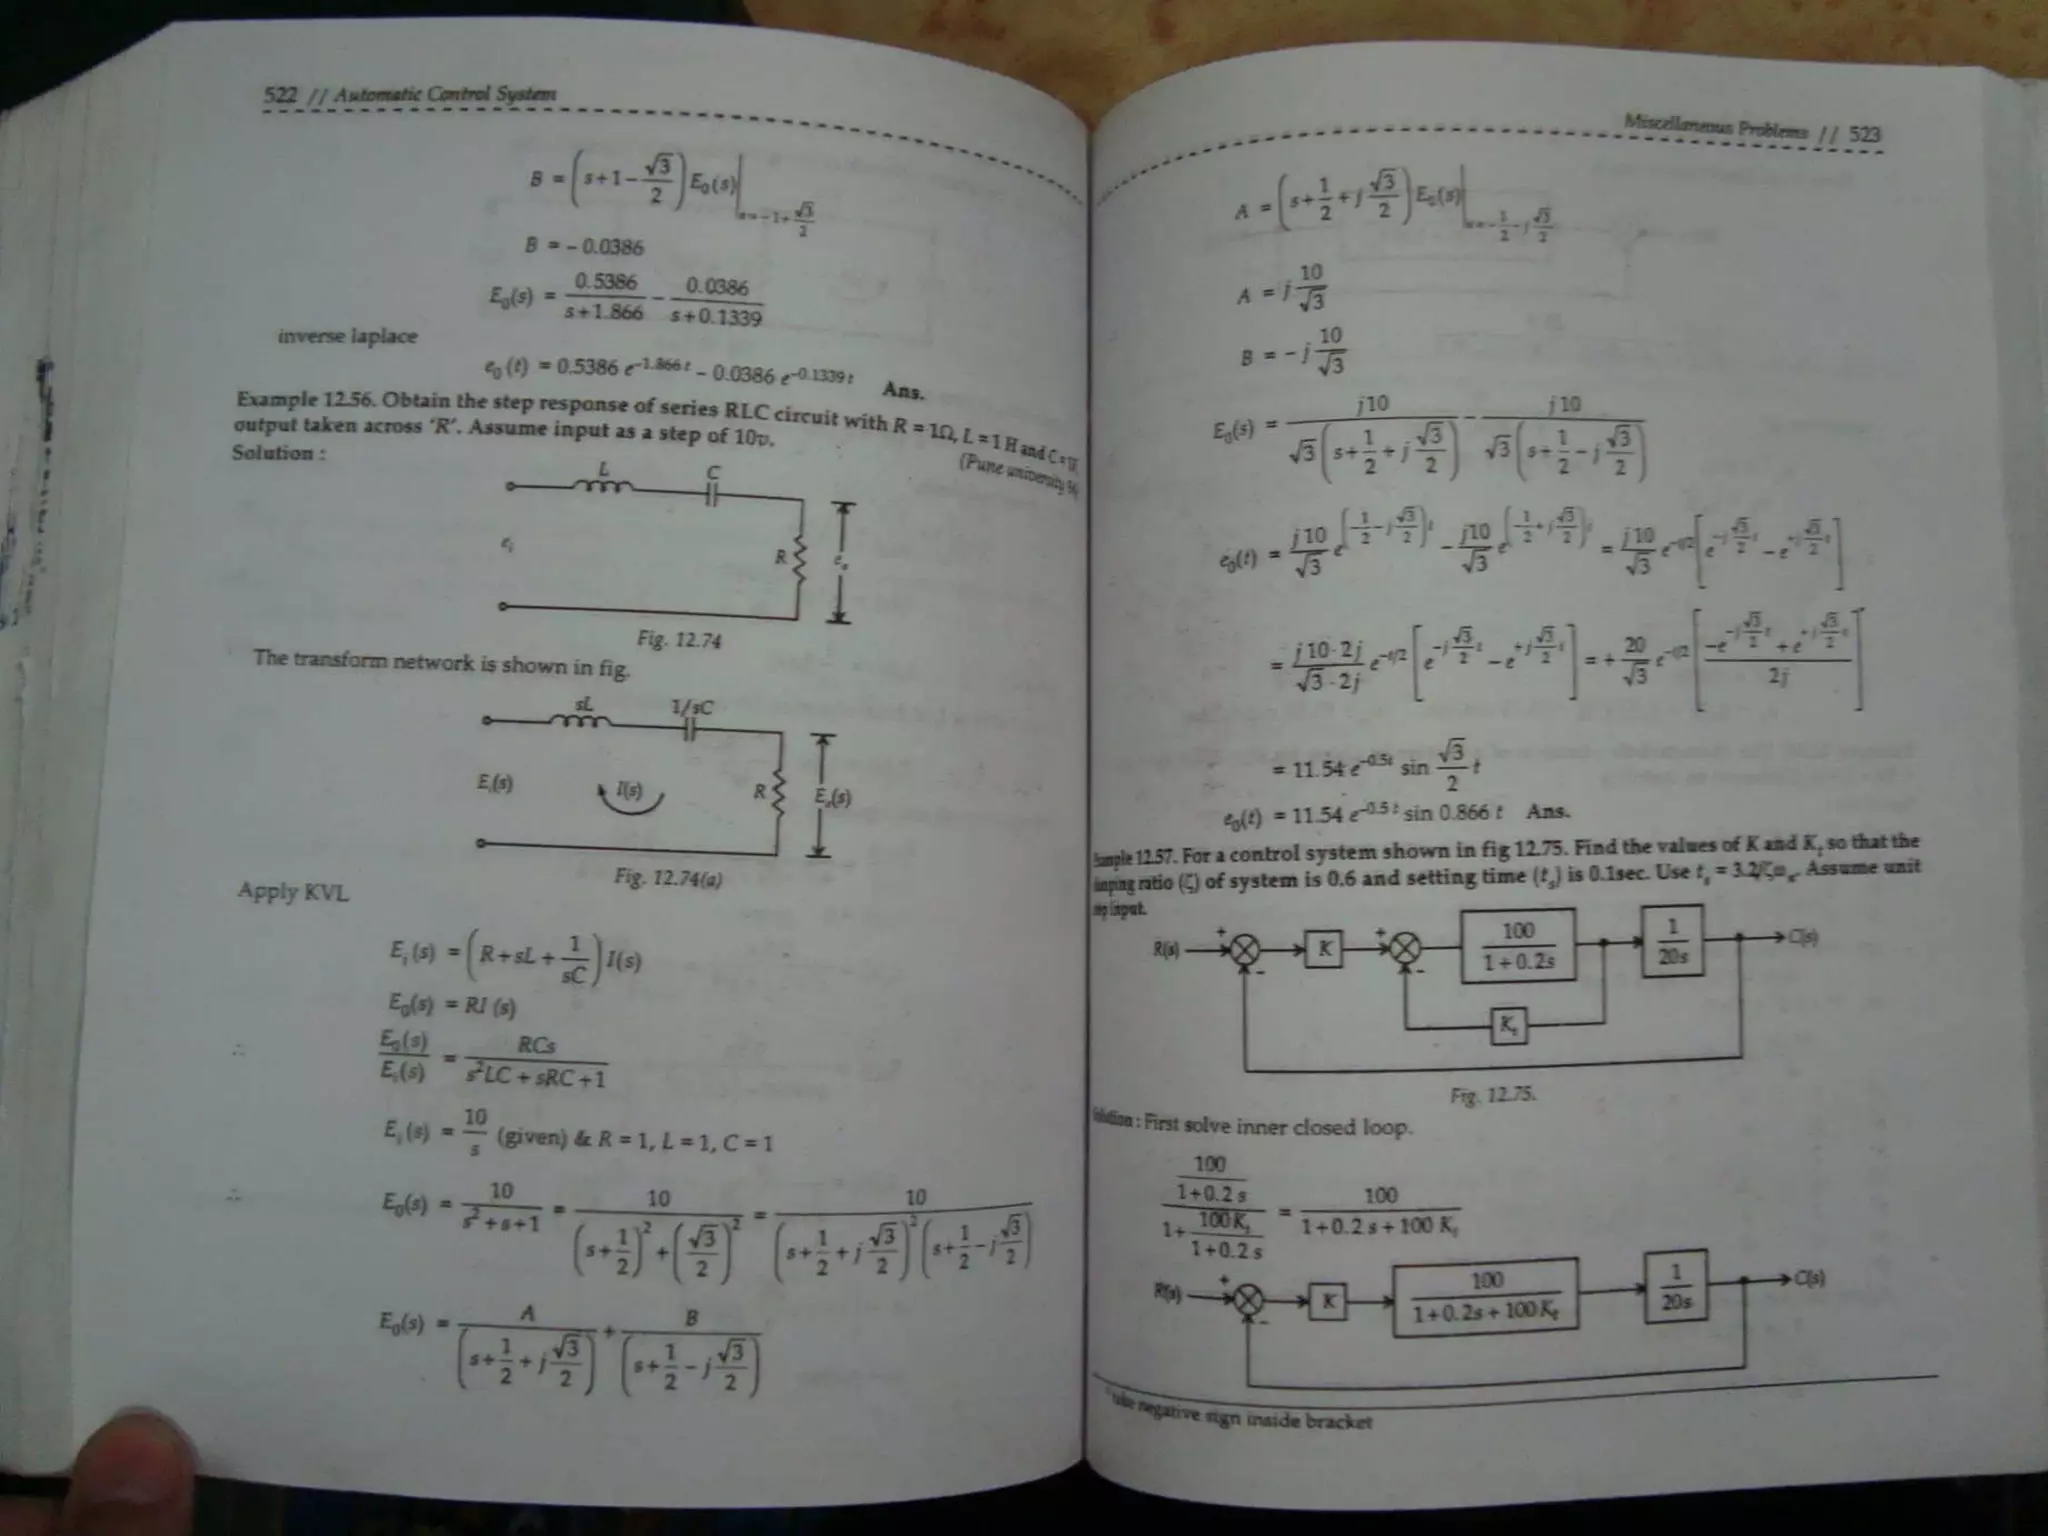 522 // Automatic Control System
B = (s+1-√3/2) E₀(s)|s=-1+√3/2
B = - 0.0386
E₀(s) = 0.5386/(s+1.866) - 0.0386/(s+0.1339)
inverse laplace
e₀(t) = 0.5386 e^(-1.866 t) - 0.0386 e^(-0.1339 t) Ans.
Example 12.56. Obtain the step response of series RLC circuit with R = 1Ω, L = 1 H and C =
output taken across 'R'. Assume input as a step of 10v. (Pune university
Solution :
L C
eᵢ R eₒ
Fig. 12.74
The transform network is shown in fig.
sL 1/sC
Eᵢ(s) I(s) R Eₒ(s)
Fig. 12.74(a)
Apply KVL
Eᵢ(s) = (R + sL + 1/sC) I(s)
E₀(s) = RI (s)
∴ E₀(s)/Eᵢ(s) = RCs/(s²LC + sRC + 1)
Eᵢ(s) = 10/s (given) & R = 1, L = 1, C = 1
∴ E₀(s) = 10/(s²+s+1) = 10/((s+1/2)²+(√3/2)²) = 10/((s+1/2+j√3/2)²(s+1/2-j√3/2))
E₀(s) = A/(s+1/2+j√3/2) + B/(s+1/2-j√3/2)
Miscellaneous Problems // 523
A = (s+1/2+j√3/2) E₀(s)|s=-1/2-j√3/2
A = j 10/√3
B = - j 10/√3
E₀(s) = j10/(√3(s+1/2+j√3/2)) - j10/(√3(s+1/2-j√3/2))
e₀(t) = j10/√3 e^((-1/2-j√3/2)t) - j10/√3 e^((-1/2+j√3/2)t) = j10/√3 e^(-t/2)[e^(-j√3/2 t) - e^(+j√3/2 t)]
= j10·2j/√3·2j e^(-t/2)[e^(-j√3/2 t) - e^(+j√3/2 t)] = + 20/√3 e^(-t/2)[(-e^(-j√3/2 t) + e^(+j√3/2 t))/2j]
= 11.54 e^(-0.5t) sin √3/2 t
e₀(t) = 11.54 e^(-0.5 t) sin 0.866 t Ans.
12.57. For a control system shown in fig 12.75. Find the values of K and Kₜ so that the
ratio (ζ) of system is 0.6 and setting time (tₛ) is 0.1sec. Use tₛ = 3.2/ζωₙ. Assume unit
input.
R(s) + - K + - 100/(1+0.2s) 1/20s C(s)
Kₜ
Fig. 12.75.
: First solve inner closed loop.
(100/(1+0.2 s))/(1+100Kₜ/(1+0.2 s)) = 100/(1+0.2 s+100 Kₜ)
R(s) + - K 100/(1+0.2s+100Kₜ) 1/20s C(s)
take negative sign inside bracket